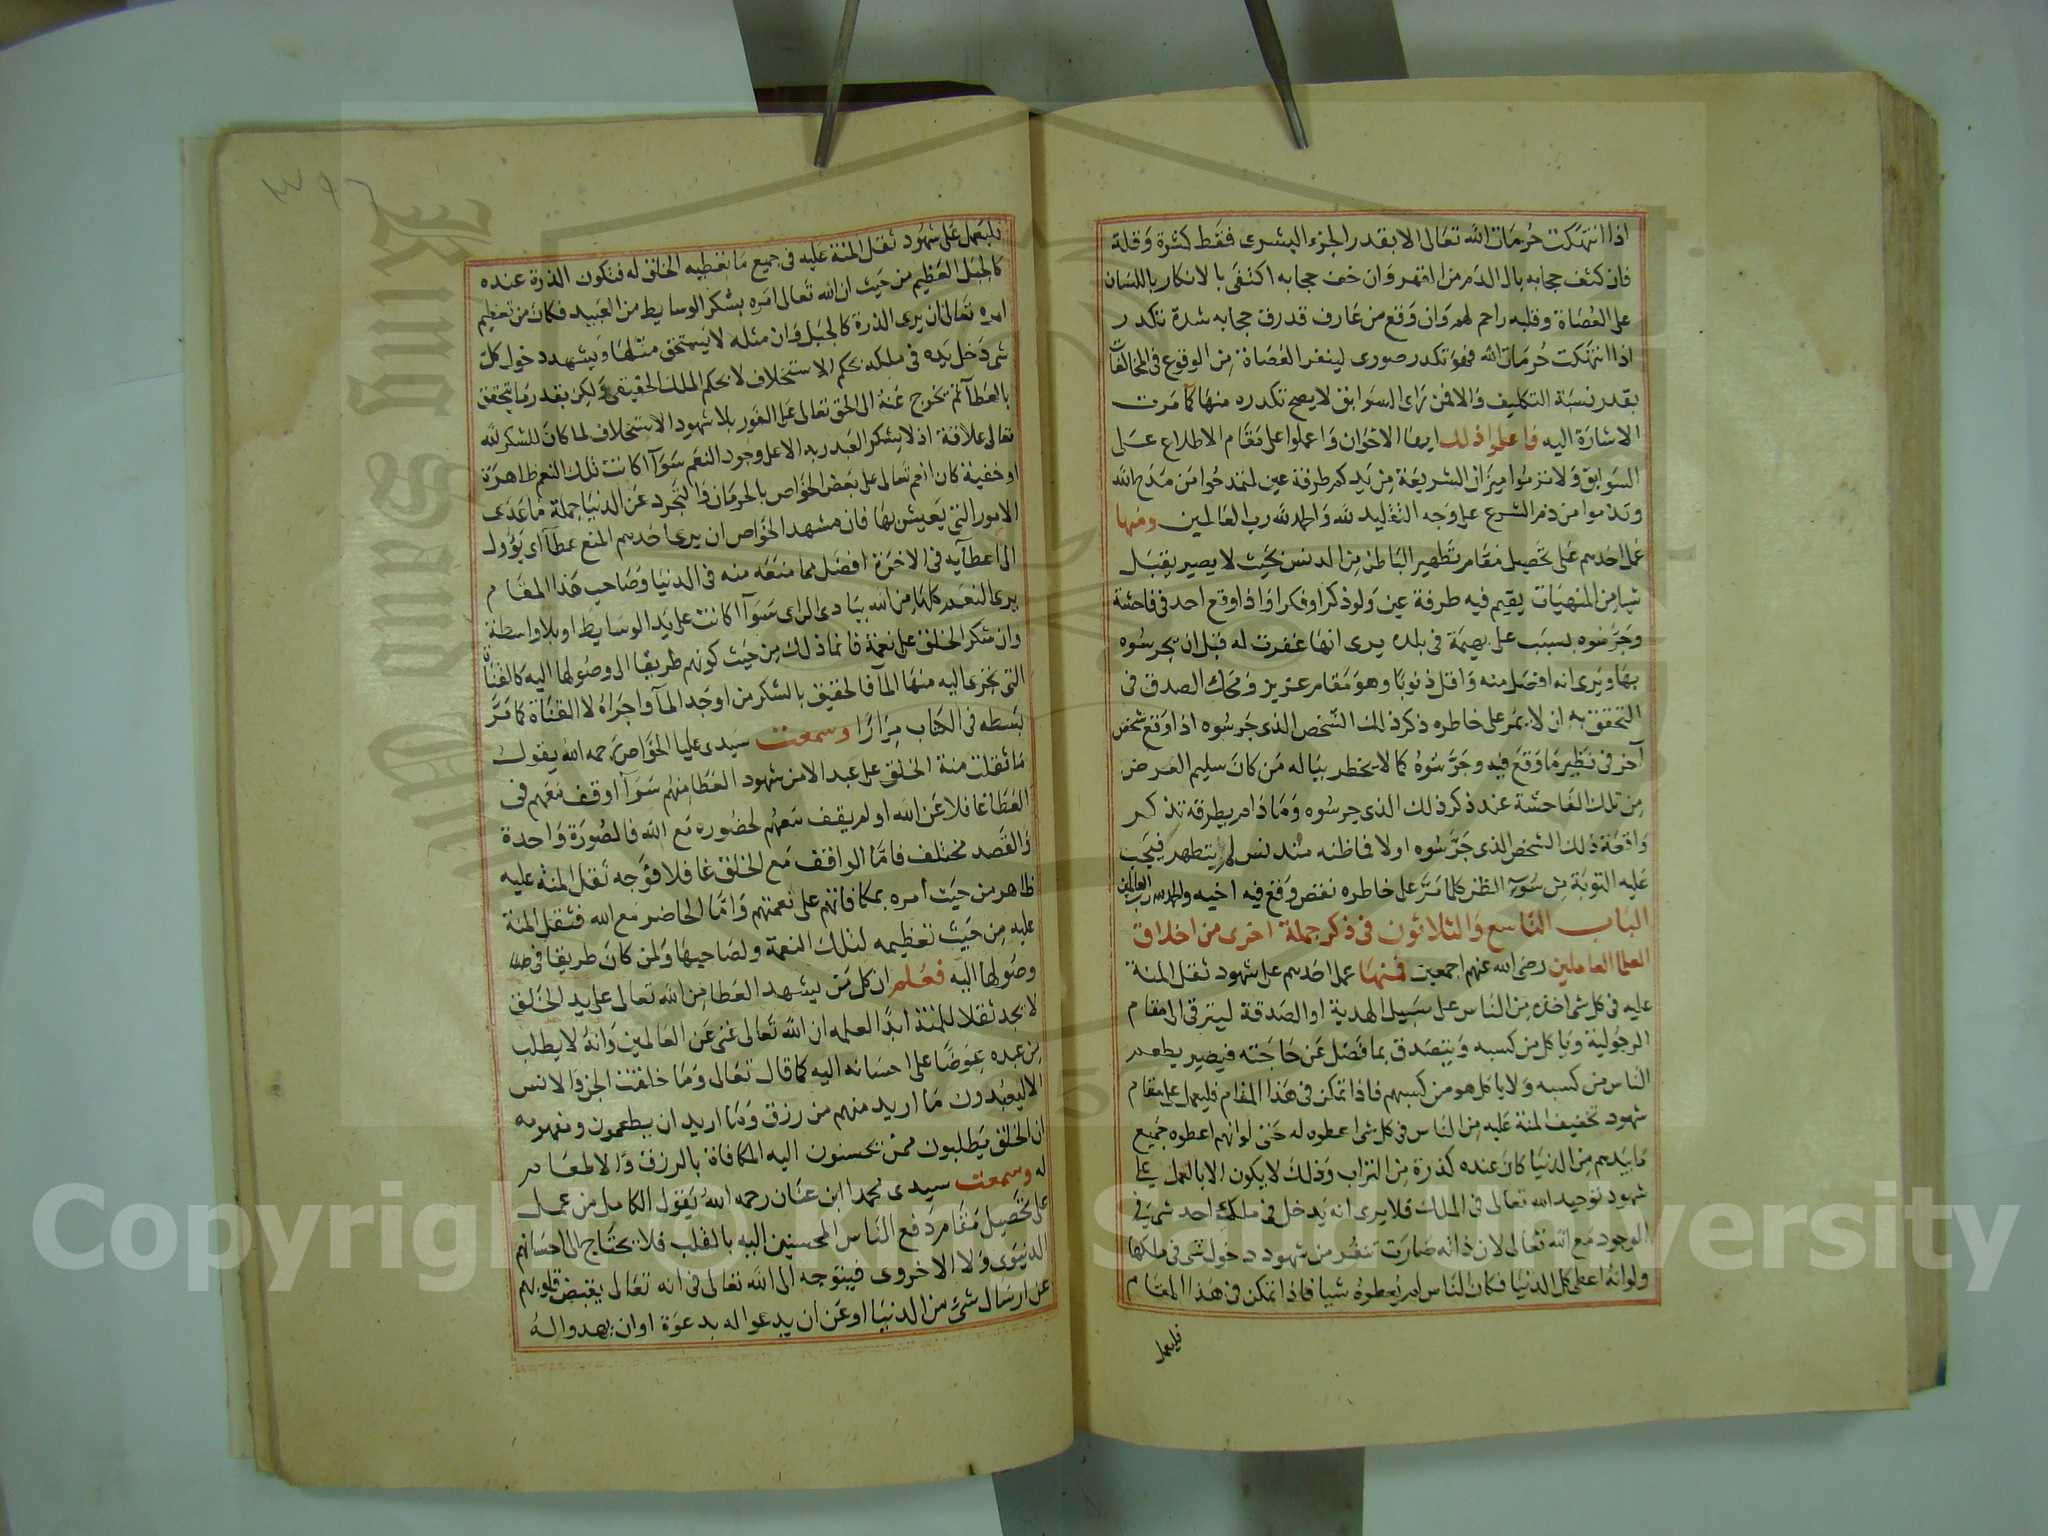 اذا انتهكت حرمات الله تعالى الا بقدر الجزء البشرى فقط كثرة وقلة
فان كثف حجابه بال الدم من افهر وان خف حجابه اكتفى بالانكار باللسان
على العصاة وقلبه راحم لهم وان وقع من عارف قد رق حجابه شدة تكدر
اذا انتهكت حرمات الله فهو تكدر صورى لينفر العصاة من الوقوع فى المخالفات
بقدر نسبة التكليف والا فمن راى السوابق لا يصح تكدره منها كما مرت
الاشارة اليه فاعلموا ذلك ايها الاخوان واعملوا على مقام الاطلاع على
السوابق ولا ترموا ميزان الشريعة من يدكم طرفة عين لتمدحوا من مدح الله
وتذموا من ذم الشرع على وجه التقليد لله والحمد لله رب العالمين ومنها
عمل احدهم على تحصيل مقام تطهير الباطن من الدنس بحيث لا يصير يقبل
شيا من المنهيات يقيم فيه طرفة عين ولو ذكرا وفكرا واذا وقع احد فى فاحشة
وجرسوه بسبب على بهيمة فى بلده يرى انها غفرت له قبل ان يجرسوه
بها ويرى انه افضل منه واقل ذنوبا وهو مقام عزيز ومحك الصدق فى
التحقق به ان لا يمر على خاطره ذكر ذلك الشخص الذى جرسوه اذا وقع شخص
آخر فى نظير ما وقع فيه وجرسوه كما لا يخطر بباله من كان سليم العرض
من تلك الفاحشة عند ذكر ذلك الذى جرسوه وما دام يطرقه تذكر
واقعة ذلك الشخص الذى جرسوه اولا فباطنه متدنس لم يتطهر فيجب
عليه التوبة من سوء الظن كلما مر على خاطره نقص وقع فيه اخيه والحمد لله رب العالمين
الباب التاسع والثلاثون فى ذكر جملة اخرى من اخلاق
العلما العاملين رضى الله عنهم اجمعين فمنها عمل احدهم على شهود ثقل المنة
عليه فى كل شى اخذه من الناس على سبيل الهدية او الصدقة ليترقى الى مقام
الرجولية وياكل من كسبه ويتصدق بما فضل عن حاجته فيصير يطعم
الناس من كسبه ولا ياكل هو من كسبهم فاذا تمكن فى هذا المقام فليعمل على مقام
شهود تخفيف المنة عليه من الناس فى كل شى اعطوه له حتى لو انهم اعطوه جميع
ما بيدهم من الدنيا كان عنده كذرة من التراب وذلك لا يكون الا بالعمل على
شهود توحيد الله تعالى فى الملك فلا يرى انه يدخل فى ملك احد شى فى
الوجود مع الله تعالى لان ذاته صارت تنفر من شهود دخول شى فى ملكها
ولو انه اعطى كل الدنيا فكان الناس لم يعطوه شيا فاذا تمكن فى هذا المقام
فليعمل
فليعمل على شهود ثقل المنة عليه فى جميع ما تعطيه الخلق له فتكون الذرة عنده
كالجبل العظيم من حيث ان الله تعالى امره بشكر الوسايط من العبيد فكان من تعظيم
امره تعالى ان يرى الذرة كالجبل وان مثله لا يستحق مثلها ويشهد دخول كل
شى دخل يده فى ملكه بحكم الاستخلاف لا بحكم الملك الحقيقى ولكن بقدر ما يتحقق
بالعطا ثم يخرج عنه الى الحق تعالى على الفور بلا شهود الاستخلاف لما كان للشكر لله
تعالى علاقة اذ لا يشكر العبد ربه الا على وجود النعم سوآ كانت تلك النعم ظاهرة
او خفية كان انعم تعالى على بعض الخواص بالحرمان والتجرد عن الدنيا جملة ما عدى
الامور التى يعيش بها فان مشهد الخواص ان يرى احدهم المنع عطآ اى يؤول
الى اعطايه فى الاخرة افضل مما منعه منه فى الدنيا وصاحب هذا المقام
يرى النعم كلها من الله ببادى الراى سوآ اكانت على يد الوسايط او بلا واسطة
وان شكر الخلق على نعمة فانما ذلك من حيث كونهم طريقا الى وصولها اليه كالقناة
التى يجرى اليه منها المآ فالحقيق بالشكر من اوجد المآ واجراه لا القناة كما مر
بسطه فى الكتاب مرارا وسمعت سيدى عليا الخواص رحمه الله يقول
ما ثقلت منة الخلق على عبد الا من شهود العطا منهم سوآ اوقف معهم فى
العطا غافلا عن الله او لم يقف معهم لحضوره مع الله فالصورة واحدة
والقصد مختلف فاما الواقف مع الخلق غافلا فوجه ثقل المنة عليه
ظاهر من حيث امره بمكافاتهم على نعمتهم واما الحاضر مع الله فثقل المنة
عليه من حيث تعظيمه لتلك النعمة ولصاحبها ولمن كان طريقا فى
وصولها اليه فعلم ان كل من يشهد العطا من الله تعالى على يد الخلق
لا يجد ثقلا للمنة ابدا لعلمه ان الله تعالى غنى عن العالمين وانه لا يطلب
من عبده عوضا على احسانه اليه كما قال تعالى وما خلقت الجن والانس
الا ليعبدون ما اريد منهم من رزق وما اريد ان يطعمون ومفهومه
ان الخلق يطلبون ممن يحسنون اليه المكافاة بالرزق والاطعام
له وسمعت سيدى محمدا ابن عنان رحمه الله يقول الكامل من عمل
على تحصيل مقام دفع الناس المحسنين اليه بالقلب فلا يحتاج الى احسانهم
الدنيوى ولا الاخروى فيتوجه الى الله تعالى فى انه تعالى يقبض قلوبهم
عن ارسال شئ من الدنيا او عن ان يدعوا له بدعوة او ان يهدوا له
Copyright © King Saud University